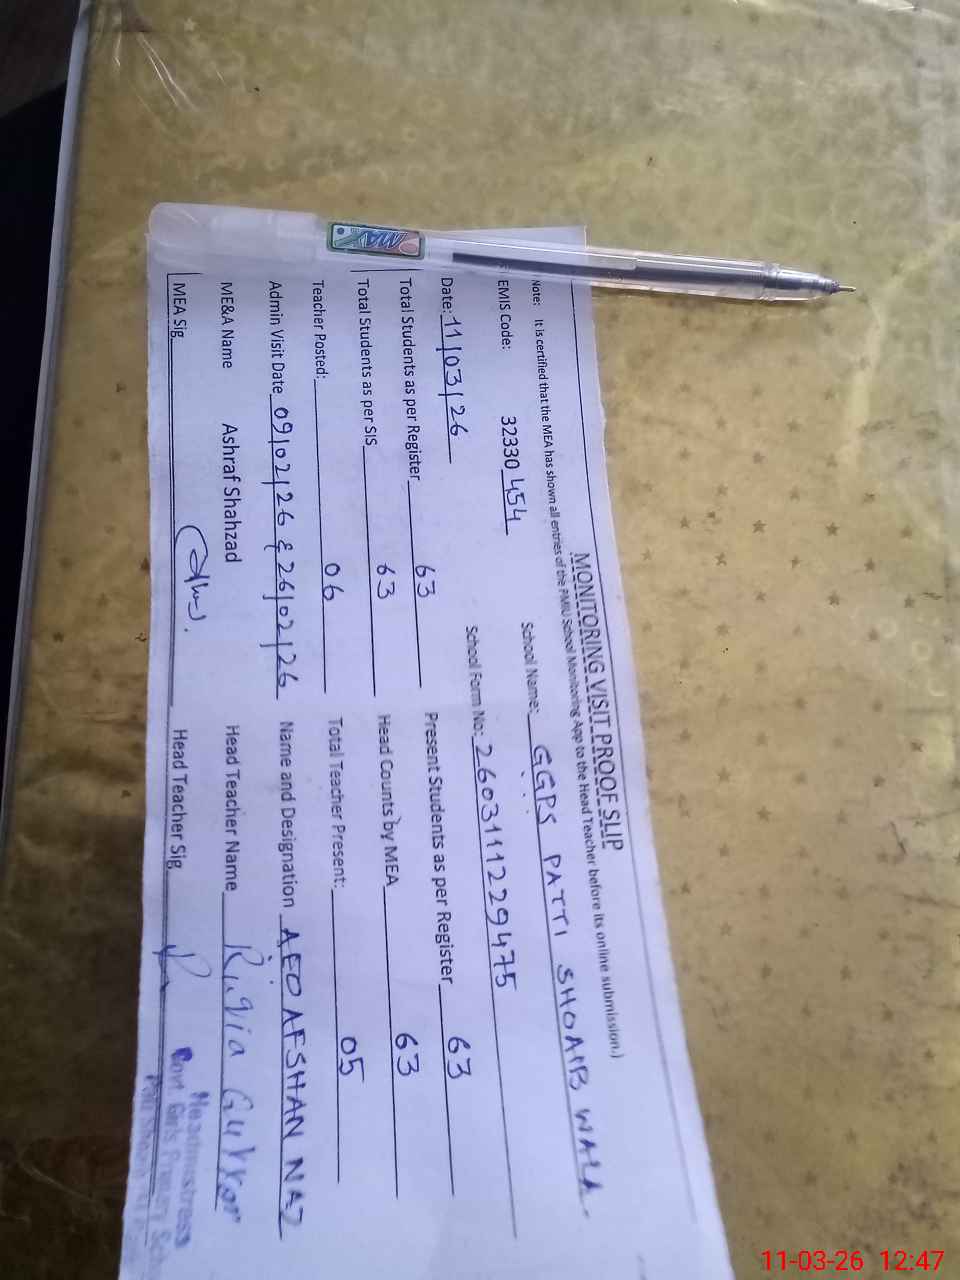 MONITORING VISIT PROOF SLIP
Note: It is certified that the MEA has shown all entries of the PMIU School Monitoring App to the Head Teacher before its online submission.)
EMIS Code: 32330 454 School Name: GGPS PATTI SHOAIB WALA.
Date: 11/03/26 School Form No: 260311122 9475
Total Students as per Register 63 Present Students as per Register 63
Total Students as per SIS 63 Head Counts by MEA 63
Teacher Posted: 06 Total Teacher Present: 05
Admin Visit Date 09/02/26 & 26/02/26 Name and Designation AEO AFSHAN NAZ
ME&A Name Ashraf Shahzad Head Teacher Name
MEA Sig Head Teacher Sig
Headmistress
Govt. Girls Primary
MAX
11-03-26 12:47